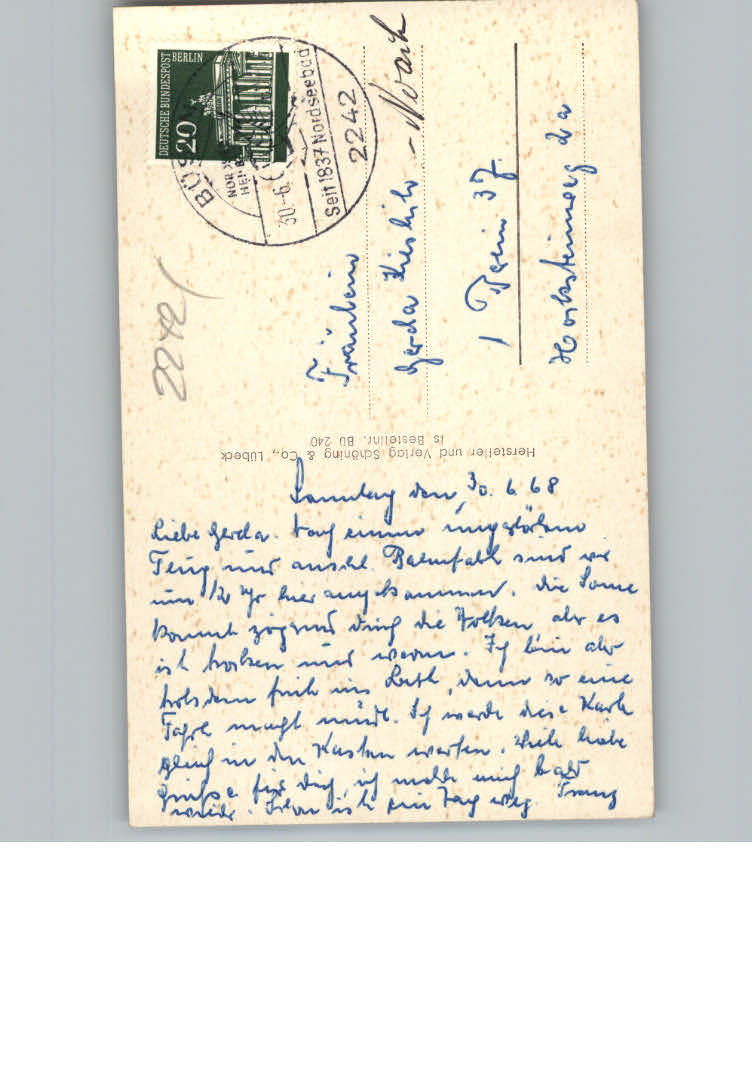 DEUTSCHE BUNDESPOST BERLIN
20
BÜS
30.-6.
Seit 1837 Nordseebad
2242
2242
Fräulein
Gerda
1 37
Hersteller und Verlag Schöning & Co., Lübeck
is Bestellnr. Bü 240
Sonntag den 30.6.68
Liebe Gerda. Nach einem
Flug und anschl. Bahnfahrt sind wir
um Uhr hier angekommen. Die Sonne
kommt zögernd durch die Wolken aber es
ist trocken und warm. Ich bin aber
trotzdem früh ins Bett, denn so eine
Fahrt macht müde. Ich werde diese Karte
gleich in den Kasten werfen. Viele liebe
Grüße für Dich, ich melde mich bald
wieder. Schon ist ein Tag weg.